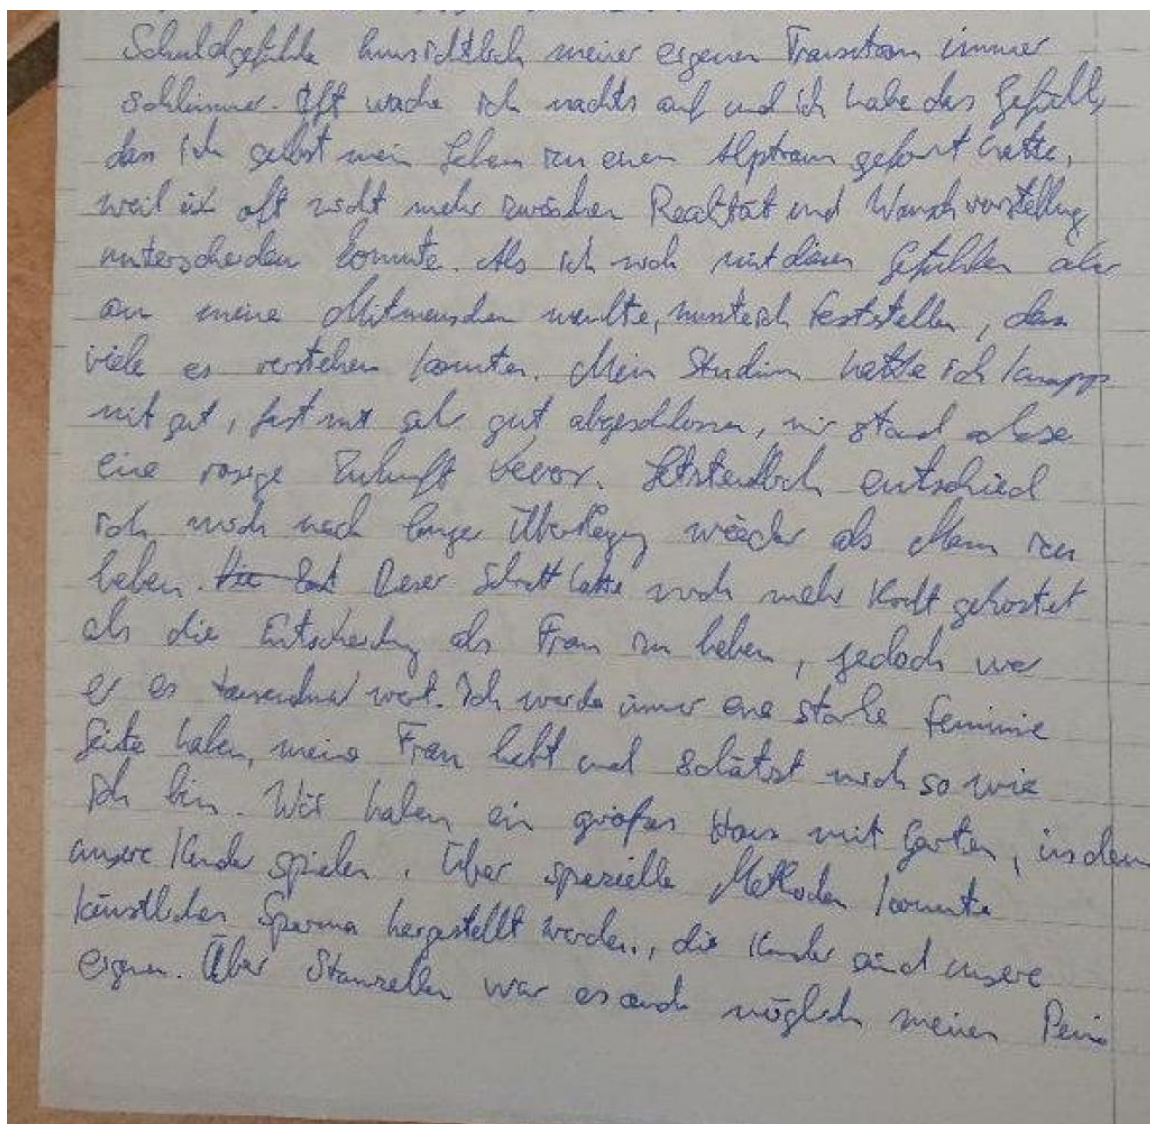 Schuldgefühle hinsichtlich meiner eigenen Transition immer
schlimmer. Oft wache ich nachts auf und ich habe das Gefühl,
dass ich selbst mein Leben zu einem Alptraum geformt hatte,
weil ich oft nicht mehr zwischen Realität und Wunschvorstellung
unterscheiden konnte. Als ich mich mit diesen Gefühlen aber
an meine Mitmenschen wandte, musste ich feststellen, dass
viele es verstehen konnten. Mein Studium hatte ich knapp
mit gut, fast mit sehr gut abgeschlossen, mir stand also
eine rosige Zukunft bevor. Letztendlich entschied
ich mich nach langer Überlegung wieder als Mann zu
leben. Dieser Schritt hatte mich mehr Kraft gekostet
als die Entscheidung als Frau zu leben, jedoch war
er es tausendmal wert. Ich werde immer eine starke feminine
Seite haben, meine Frau liebt und schätzt mich so wie
ich bin. Wir haben ein großes Haus mit Garten, in dem
unsere Kinder spielen. Über spezielle Methoden konnte
künstliches Sperma hergestellt werden, die Kinder sind unsere
eigenen. Über Stamzellen war es auch möglich meinen Penis